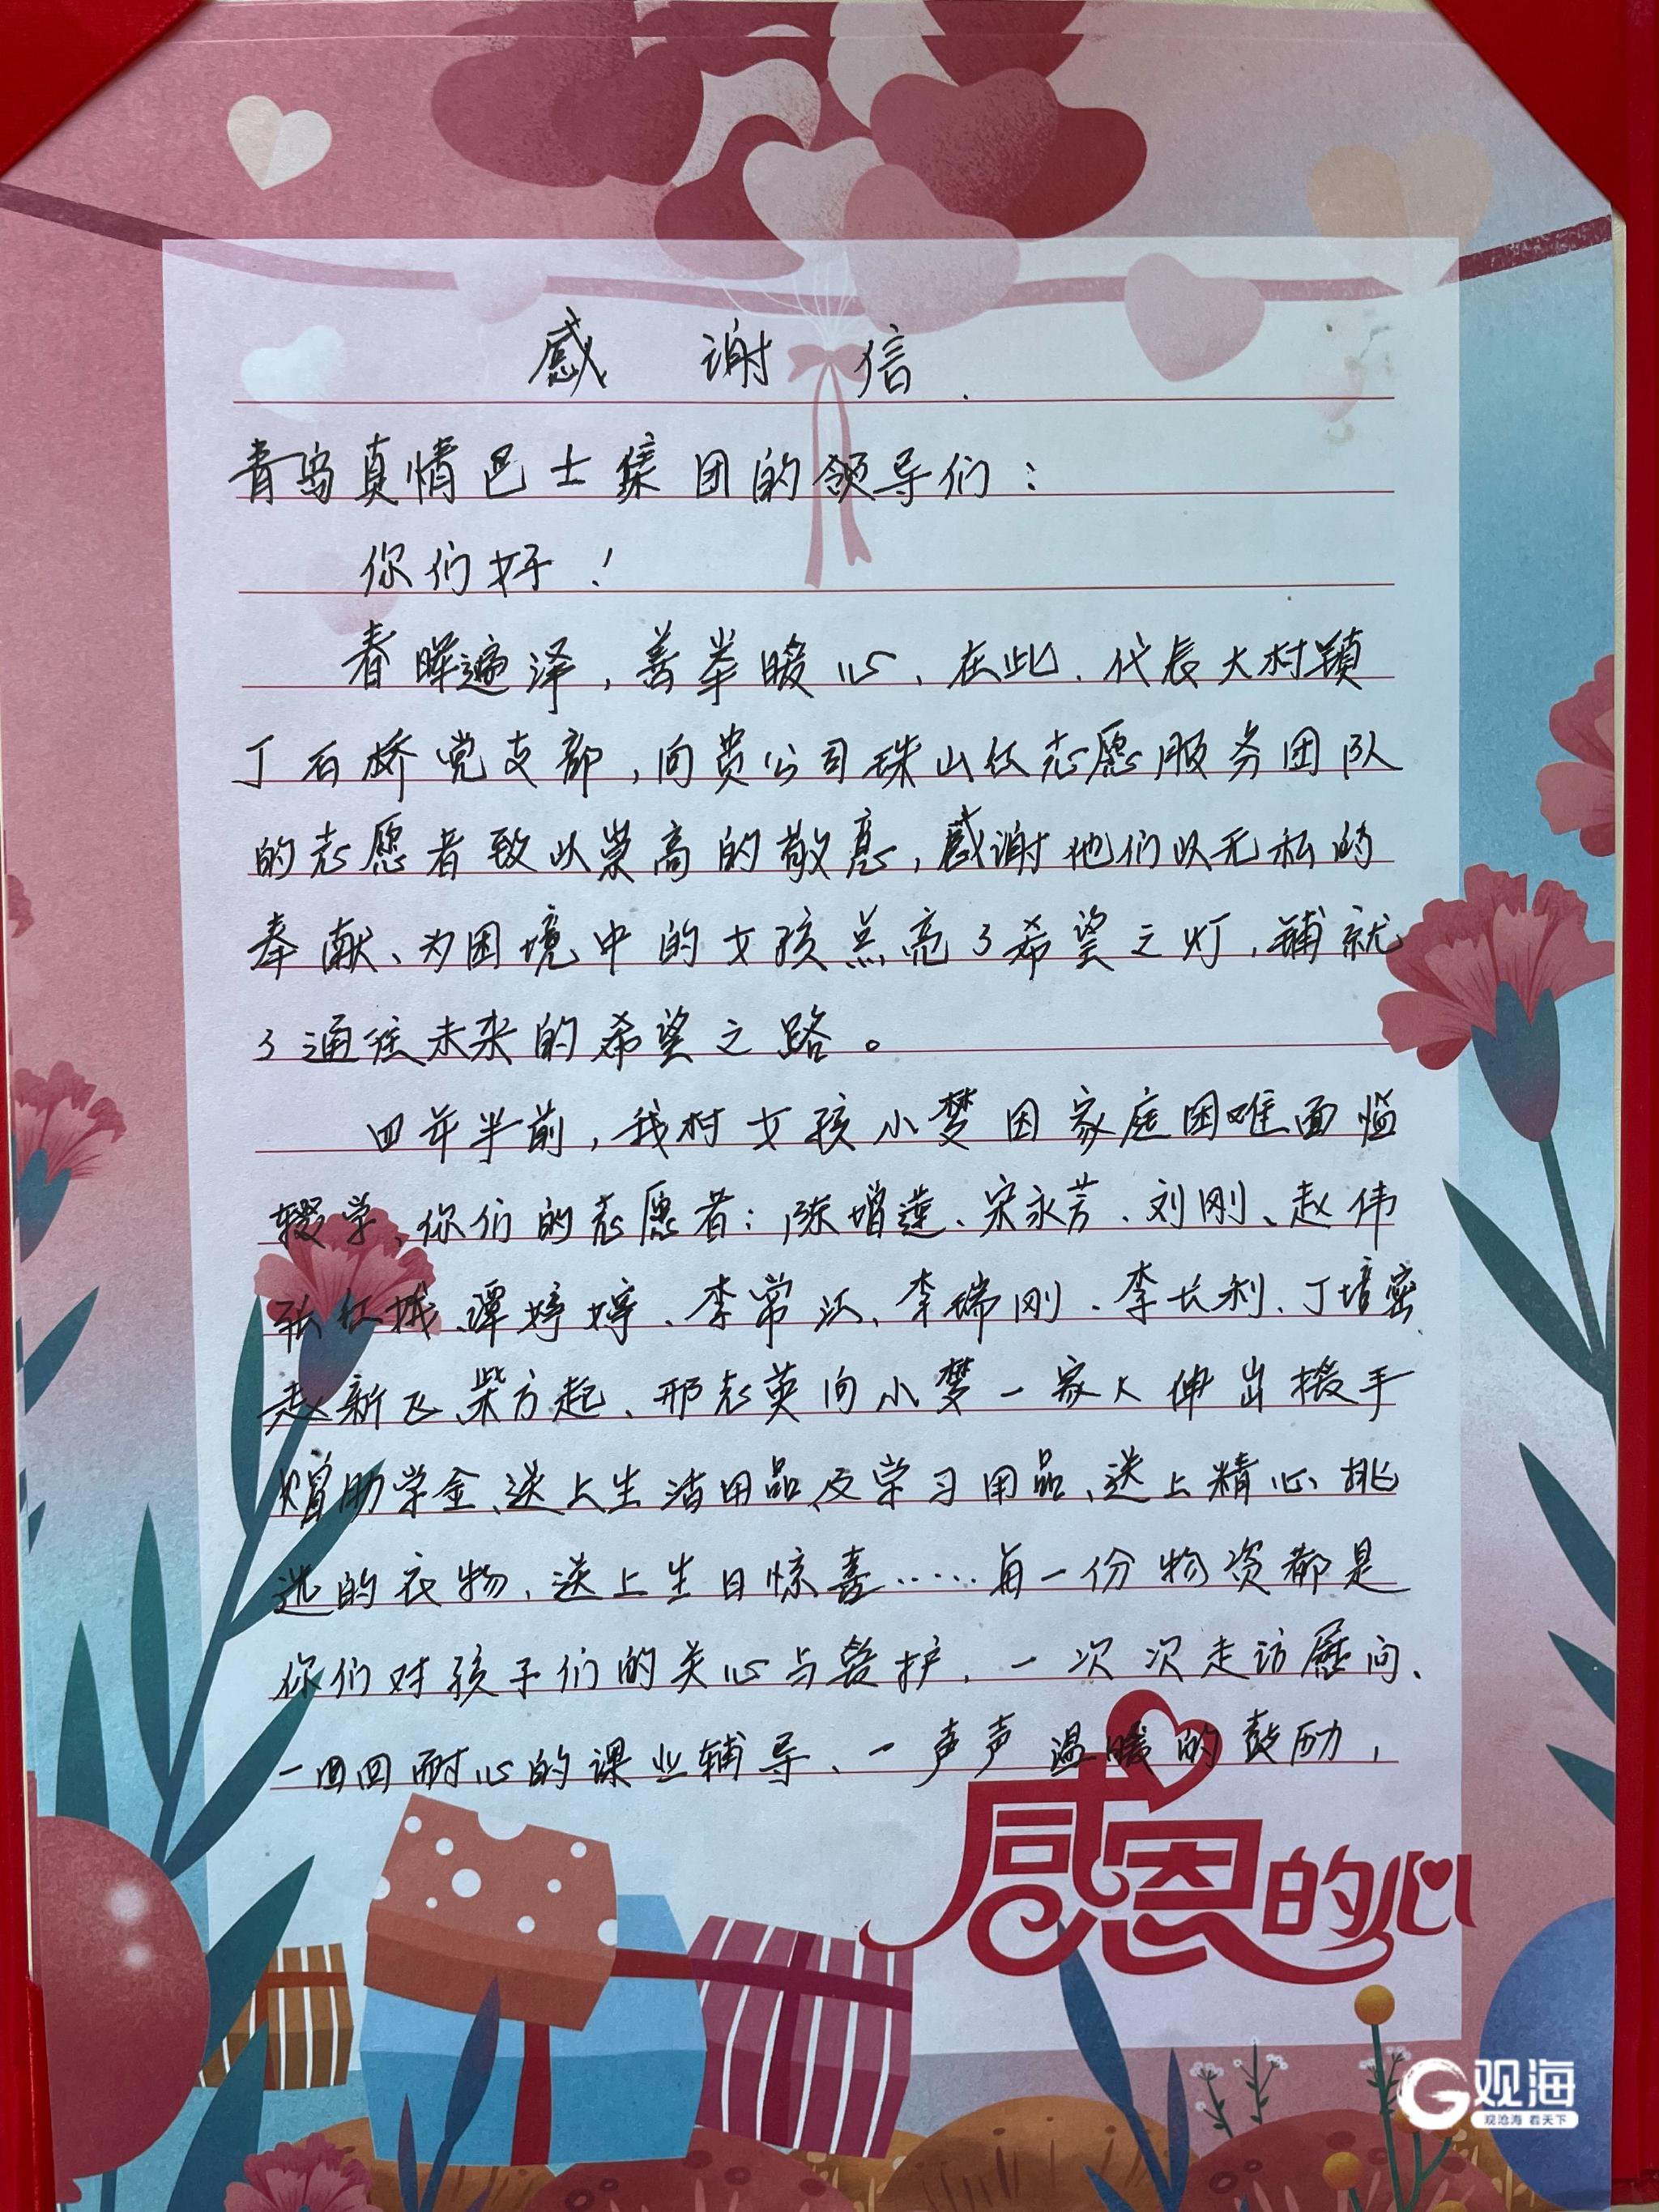 感谢信
青岛真情巴士集团的领导们：
你们好！
春晖遍泽，善举暖心、在此、代表大村镇
丁石桥党支部，向贵公司珠山红志愿服务团队
的志愿者致以崇高的敬意，感谢他们以无私的
奉献、为困境中的女孩点亮了希望之灯，铺就
了通往未来的希望之路。
四年半前，我村女孩小梦因家庭困难面临
辍学、你们的志愿者：陈增莲、宋永芳、刘刚、赵伟
张红城、谭婷婷、李常江、李瑞刚、李长利、丁培密
赵新飞、柴方起、邢志英向小梦一家人伸出援手
赠助学金、送上生活用品及学习用品、送上精心挑
选的衣物、送上生日惊喜……每一份物资都是
你们对孩子们的关心与爱护、一次次走访慰问、
一回回耐心的课业辅导、一声声温暖的鼓励，
感恩的心
G观海
观沧海 看天下